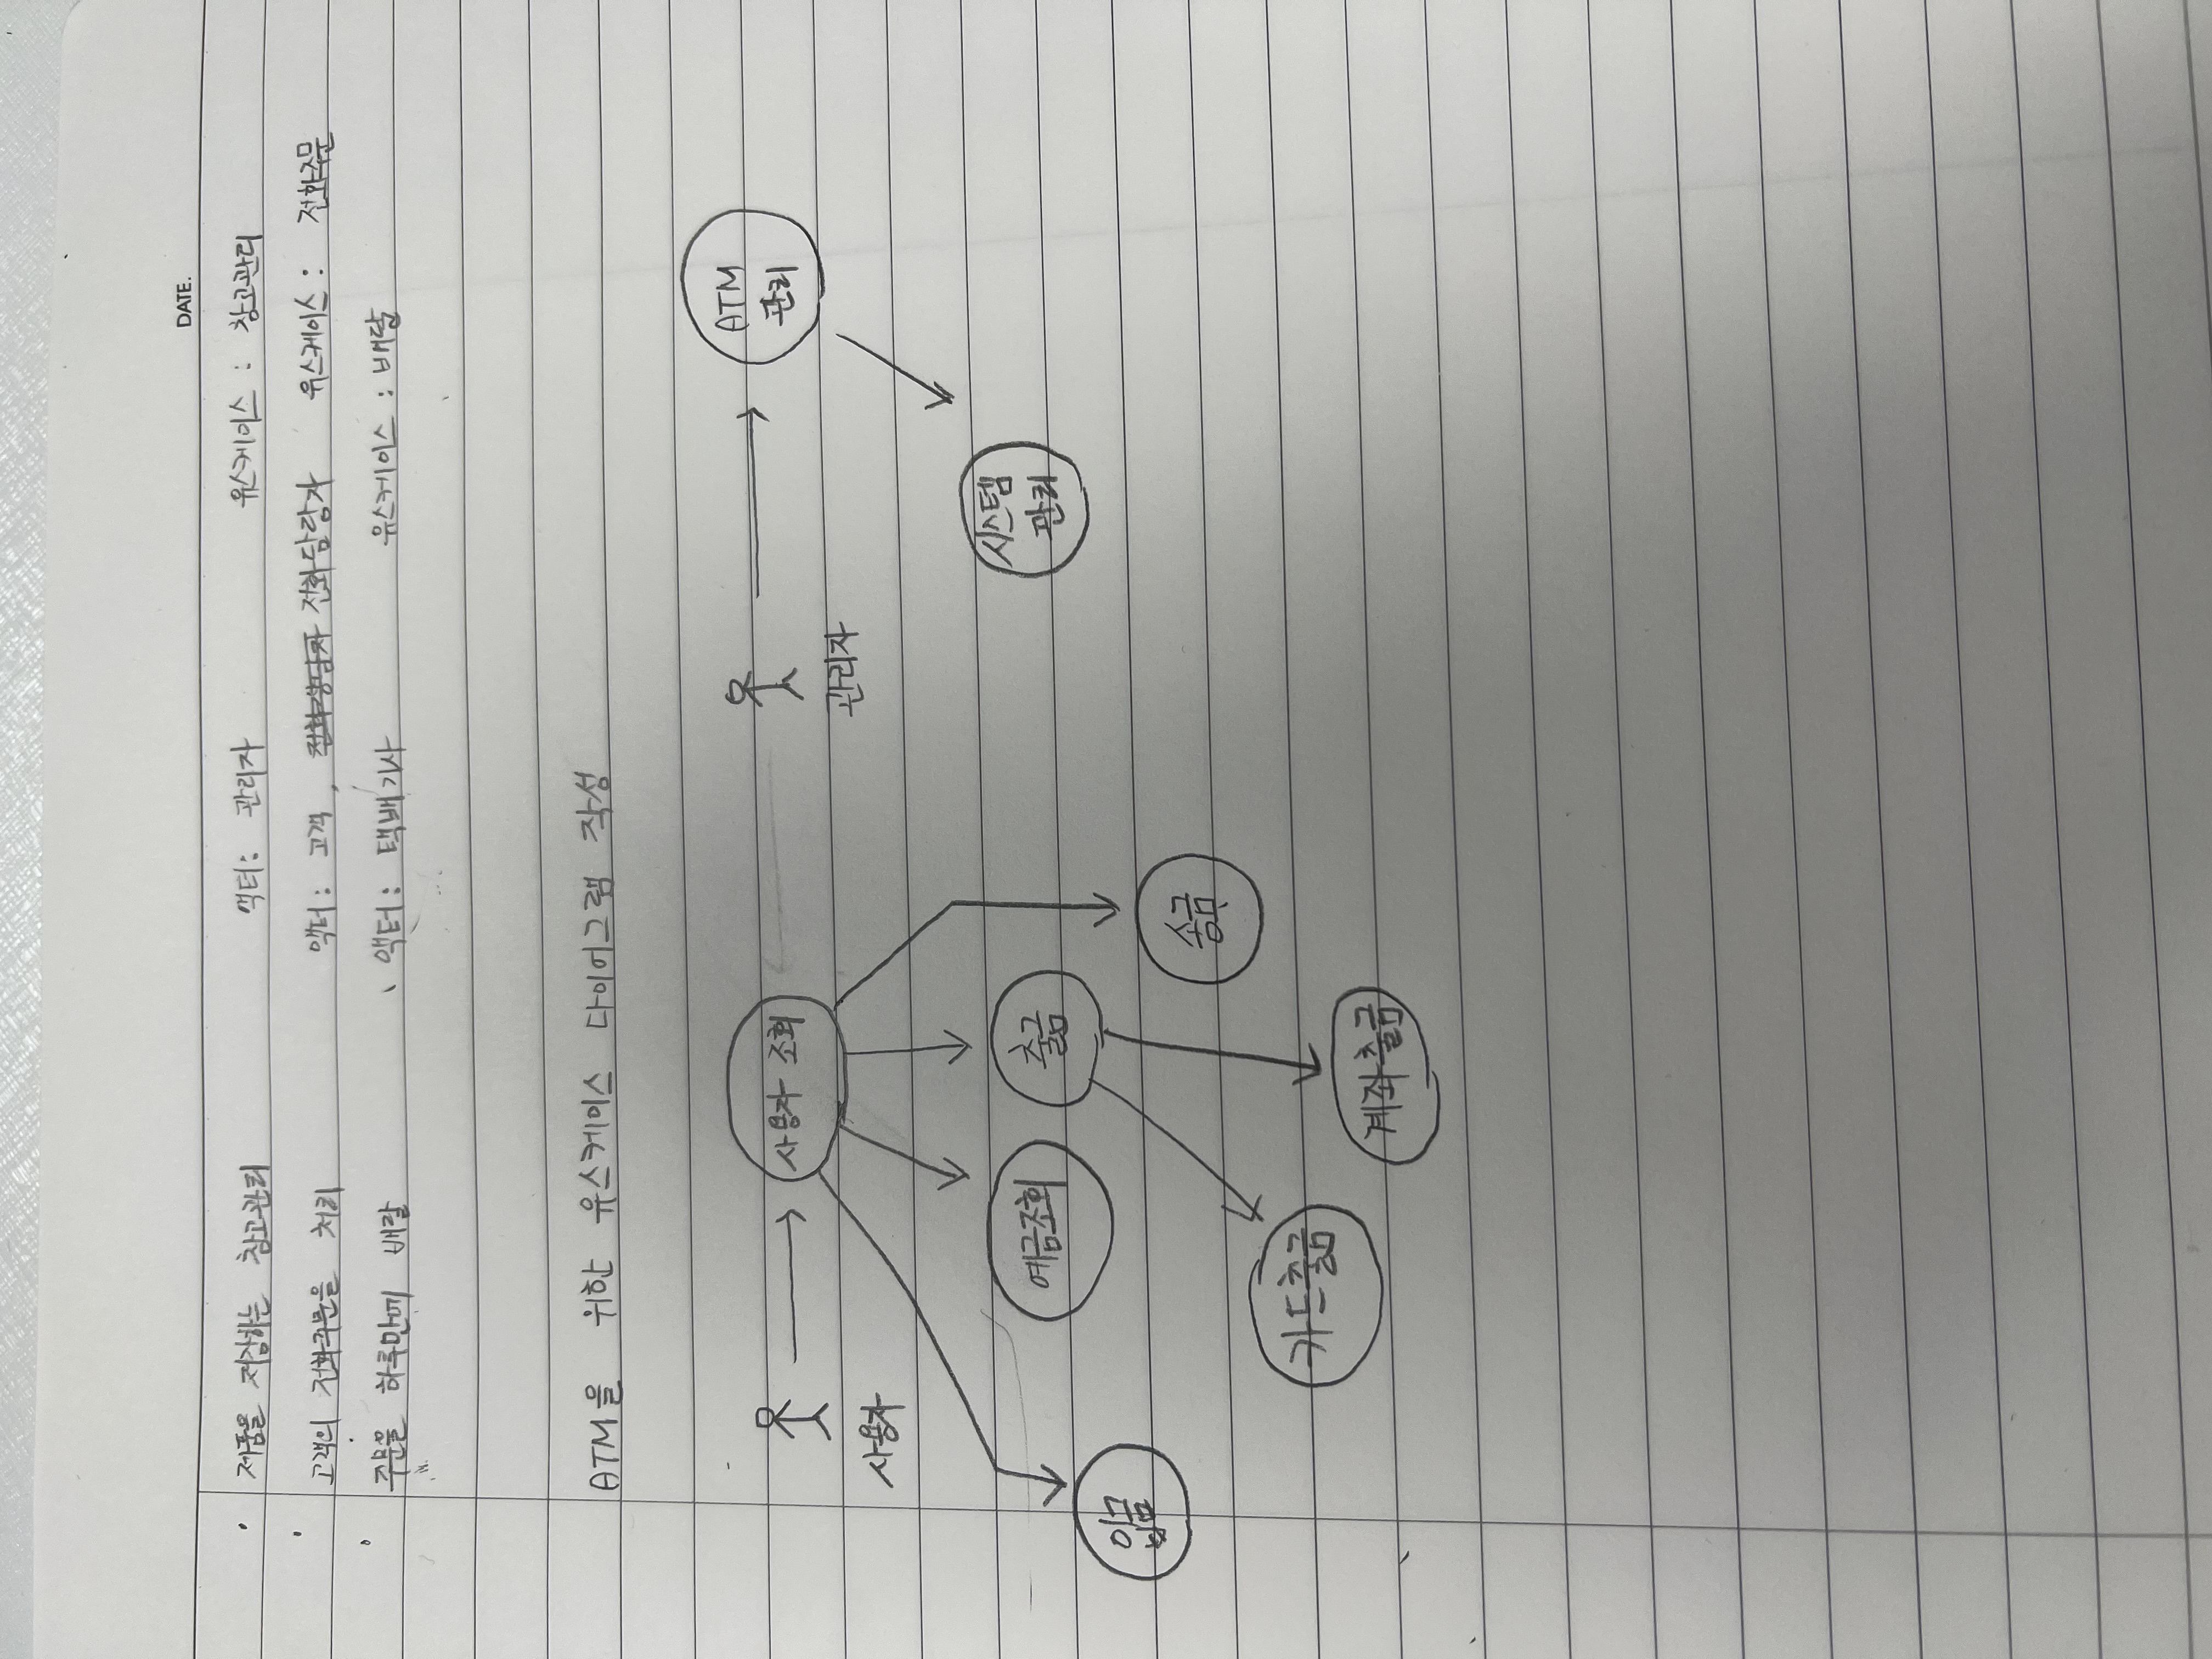 DATE.
제품을 저장하는 창고관리 액터: 관리자 유스케이스 : 창고관리
고객의 전화주문을 처리 액터: 고객, 전화담당자 유스케이스: 전화주문
주문을 하루만에 배달 액터: 택배기사 유스케이스 : 배달
ATM을 위한 유스케이스 다이어그램 작성
사용자 조회
ATM
관리
사용자
관리자
예금조회
출금
시스템
관리
입금
송금
카드출금
계좌출금